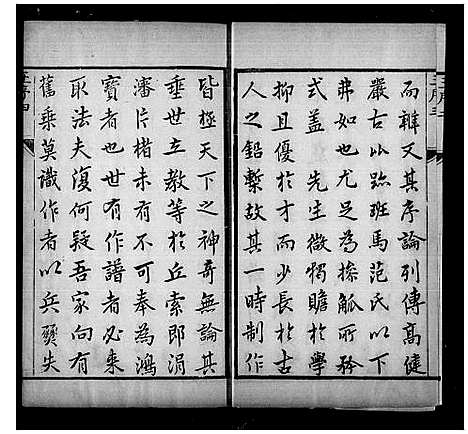 而雜又其序論列傳高健
嚴古以跡班馬范氏以下
弗如也尤足為操觚所矜
式蓋先生微獨贍於學
抑且優於才而少長於古
人之鉛槧故其一時制作
皆極天下之神奇無論其
垂世立教等於丘索即涓
瀋片楮未有不可奉為鴻
寶者也世有作譜者必來
取法夫復何疑吾家向有
舊乘莫識作者以兵燹失